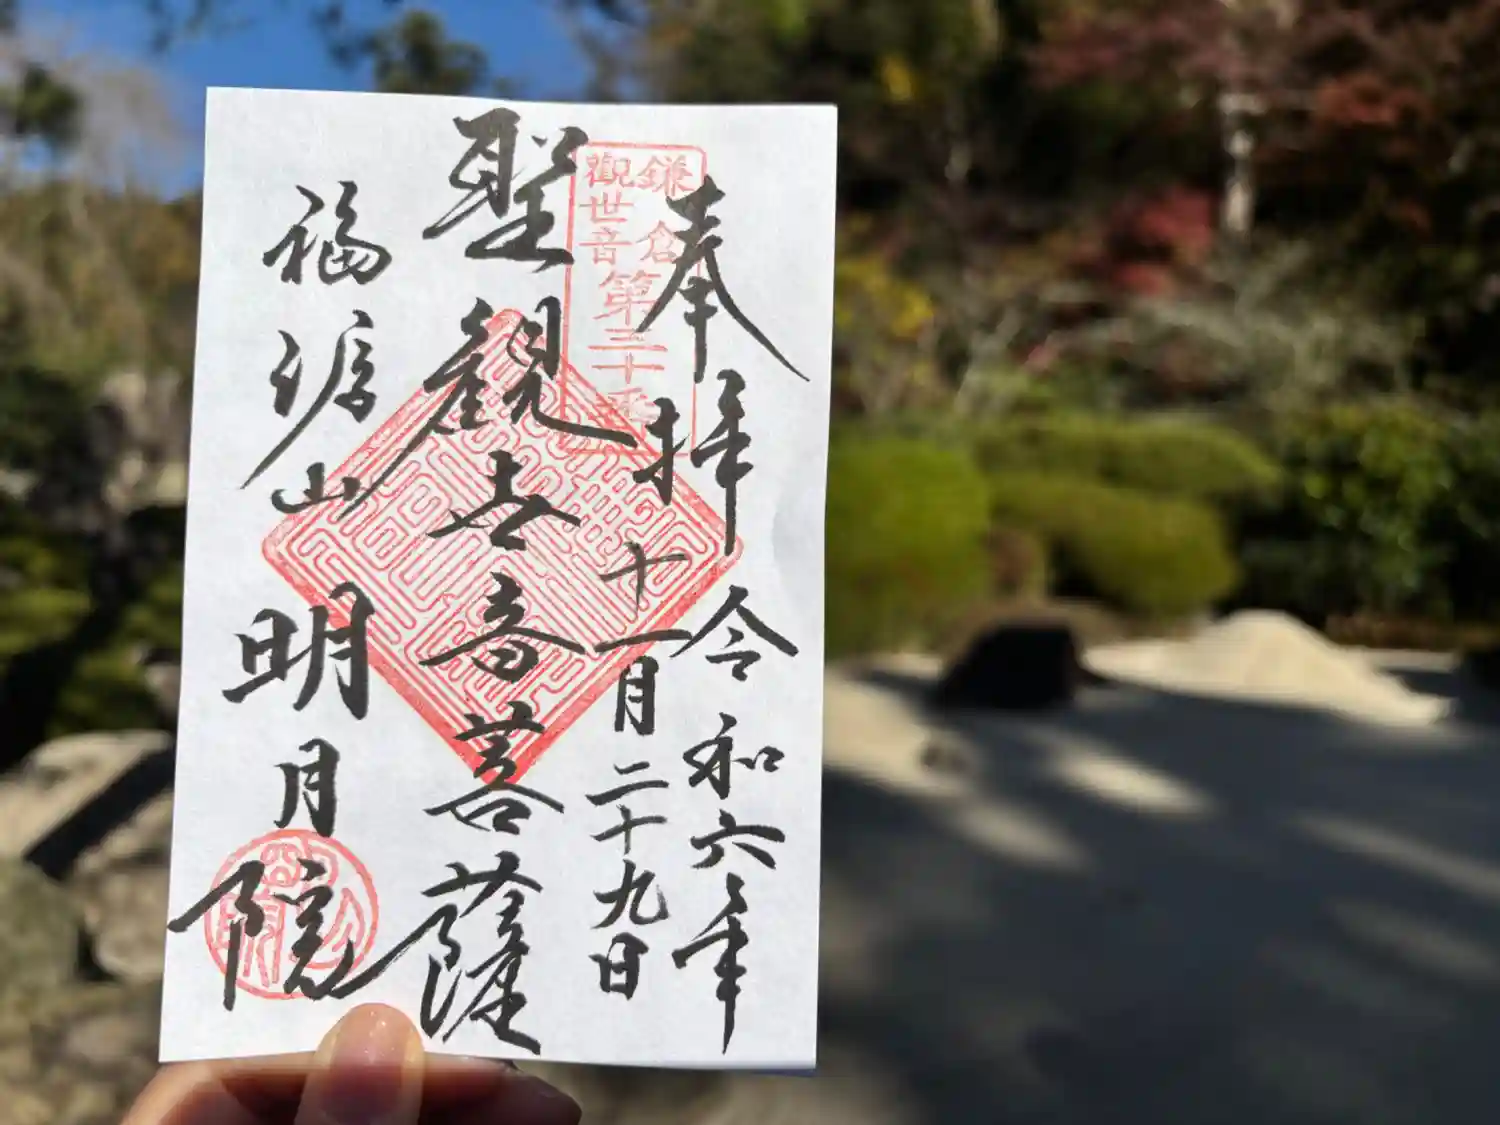 奉拝
令和六年
十一月二十九日
鎌倉
觀世音
第三十番
聖観世音菩薩
福源山
明月院